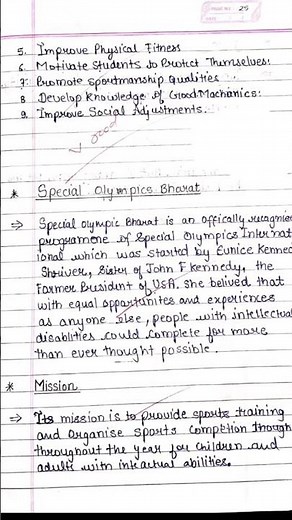 PAGE NO. 25
5. Improve Physical Fitness
6. Motivate Students to Protect Themselves.
7. Promote Sportmanship qualities.
8 Develop Knowledge of Good Machanics.
9. Improve Social Adjustments.
good
* Special Olympics Bharat
⇒ Special olympic Bharat is an offically recognise
programme of Special Olympics Internat
ional which was started by Eunice Kenned
Shriver, Sister of John F Kennedy, the
Former President of USA. She belived that
with equal opportunites and experiences
as anyone else, people with intellectual
disabilities could complete far more
than ever thought possible.
* Mission
⇒ Its mission is to provide sports training
and organise sports competion though
throughout the year for children and
adults with intactual abilities.